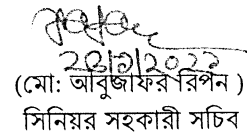 ২০/১/২০২২
(মো: আবুজাফর রিপন)
সিনিয়র সহকারী সচিব